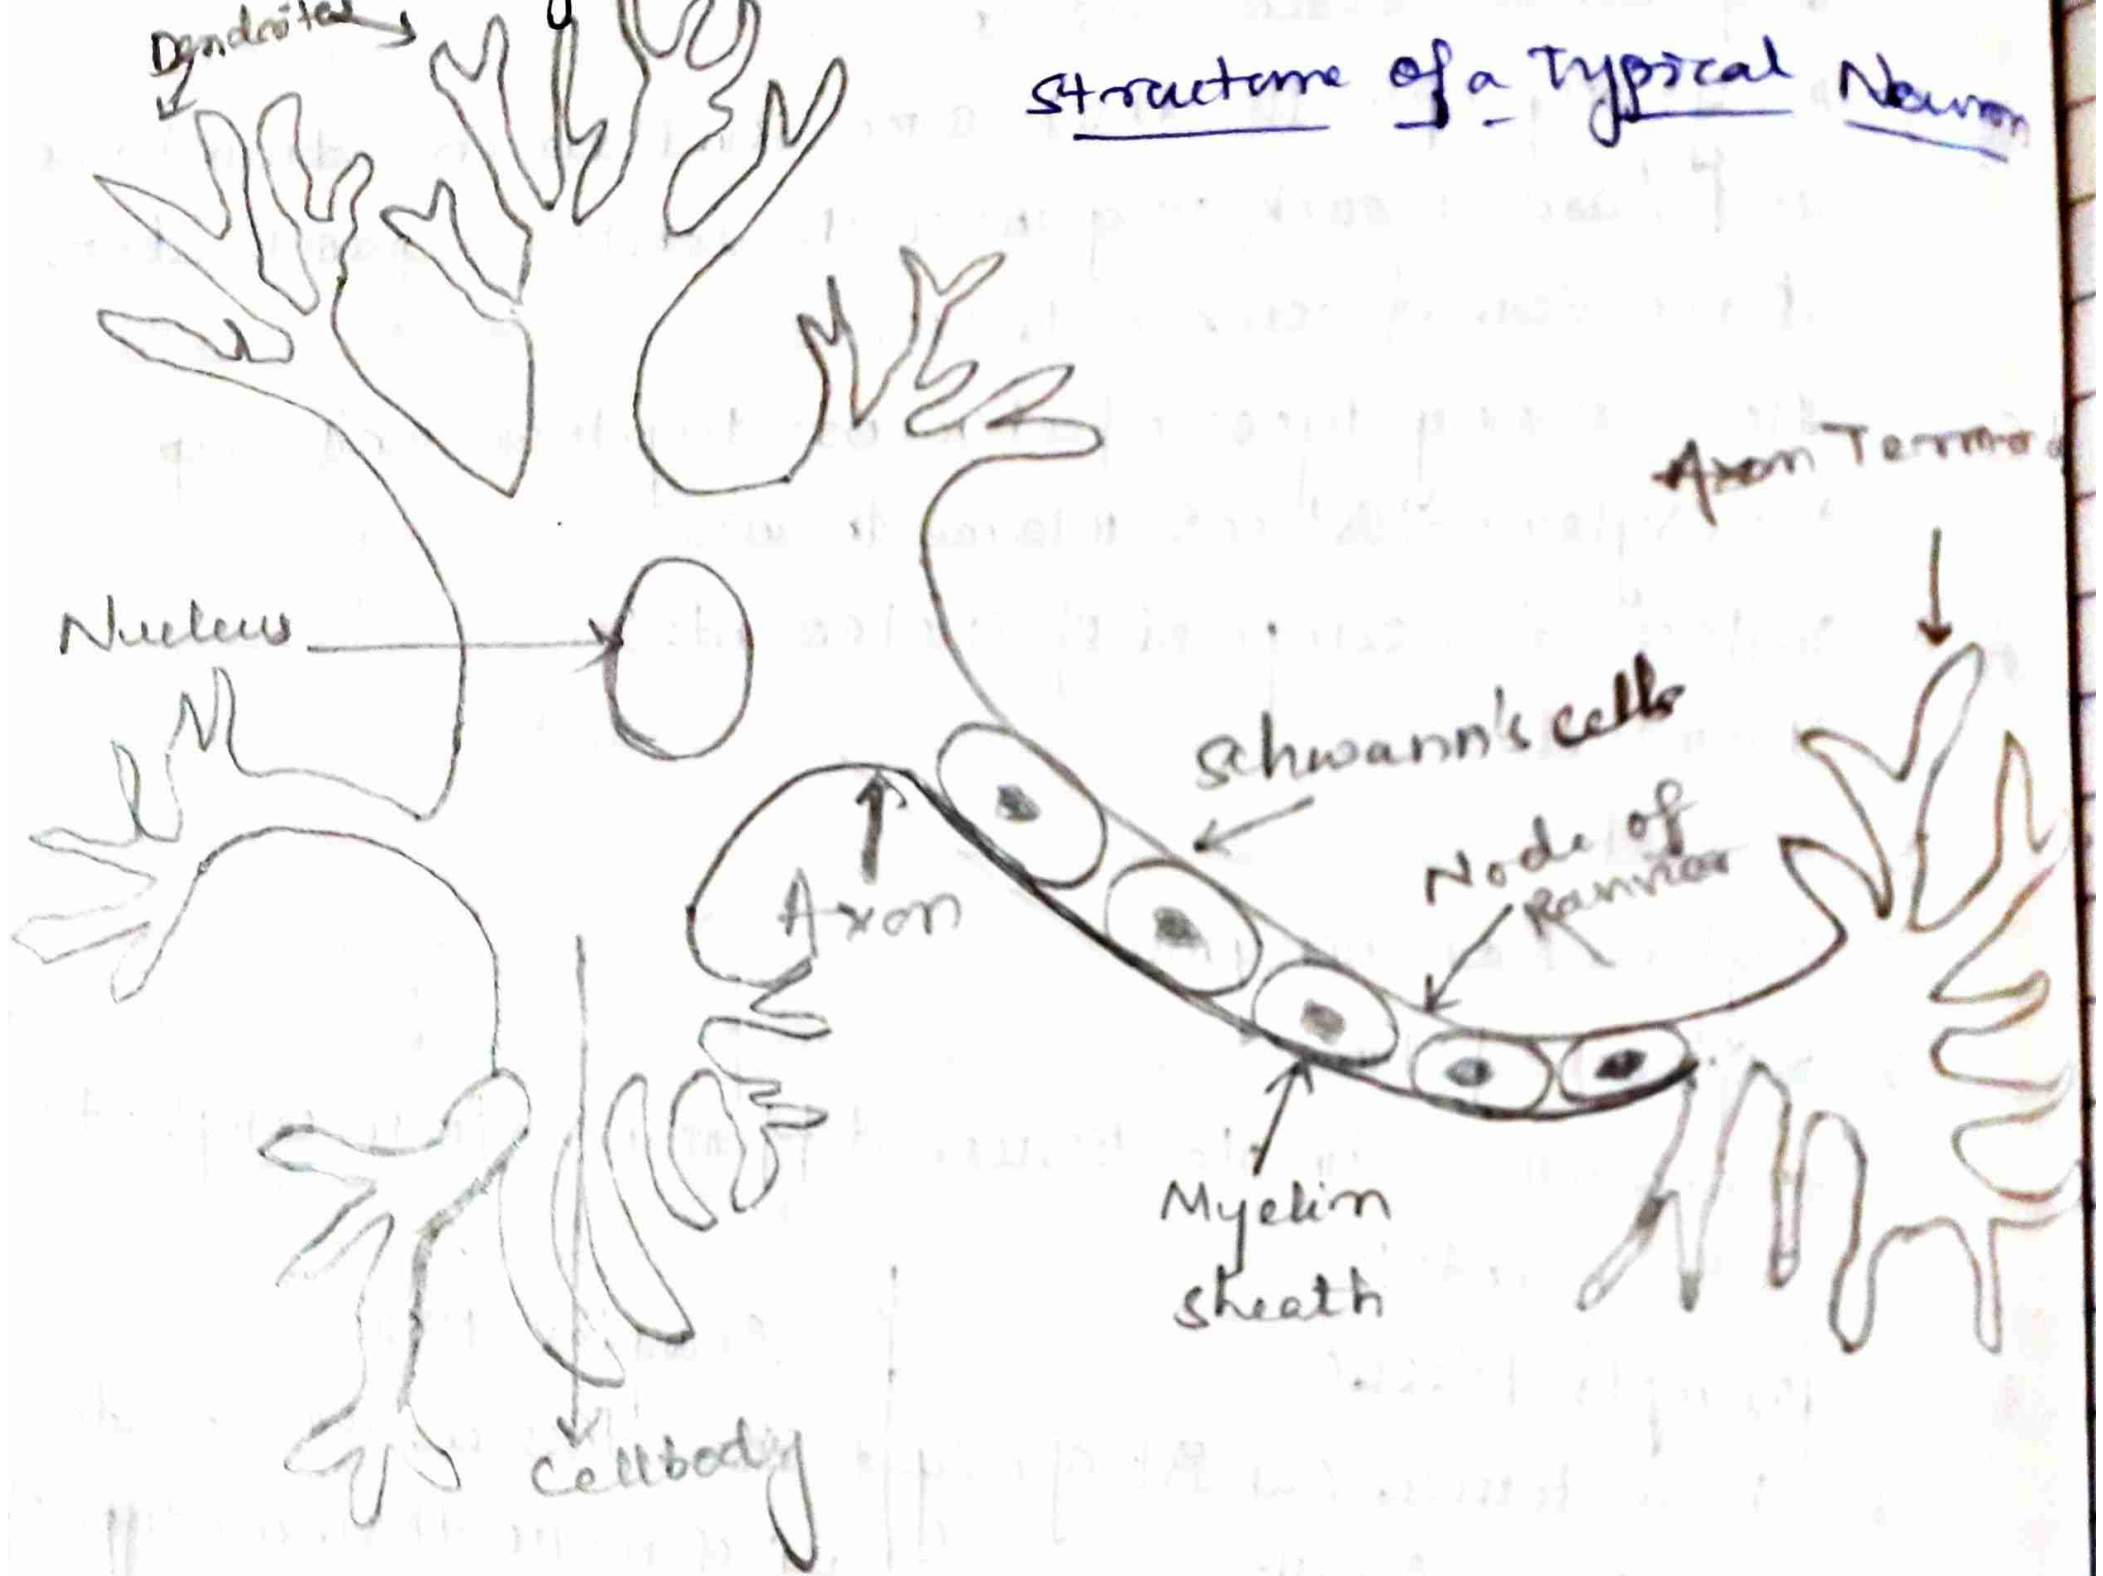 Dendrites
Structure of a Typical Neuron
Axon
Nucleus
Schwann's cells
Node of
Ranvier
Axon
Myelin
sheath
Cellbody